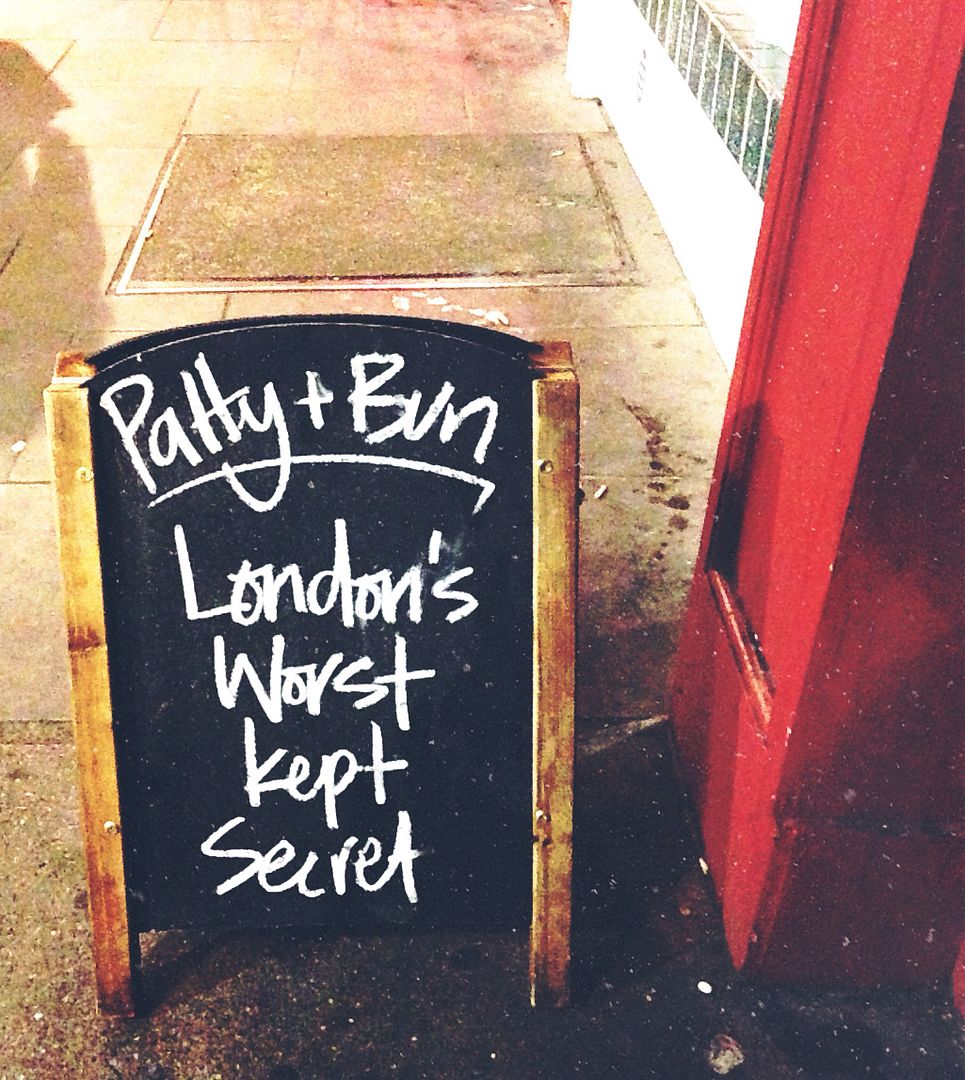 Patty + Bun
London's
Worst
kept
Secret